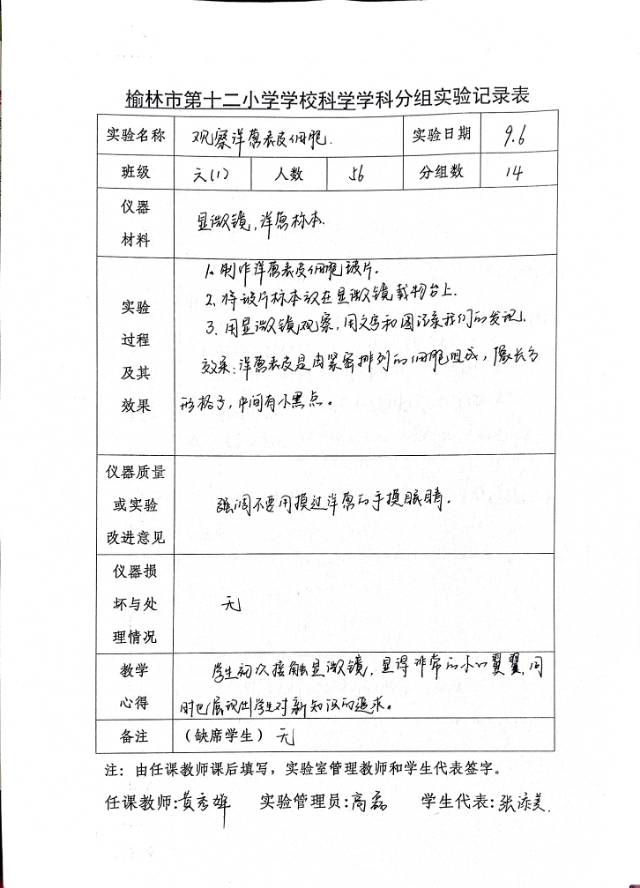 榆林市第十二小学学校科学学科分组实验记录表
实验名称 观察洋葱表皮细胞. 实验日期 9.6
班级 六(1) 人数 56 分组数 14
仪器材料 显微镜,洋葱标本.
实验过程及其效果
1.制作洋葱表皮细胞玻片.
2.将玻片标本放在显微镜载物台上.
3.用显微镜观察,用文字和图记录我们的发现.
效果:洋葱表皮是由紧密排列的细胞组成,像长方
形格子,中间有小黑点。
仪器质量或实验改进意见 强调不要用摸过洋葱的手摸眼睛.
仪器损坏与处理情况 无
教学心得 学生初次接触显微镜,显得非常的小心翼翼,同
时也展现出学生对新知识的追求。
备注 (缺席学生) 无
注:由任课教师课后填写,实验室管理教师和学生代表签字。
任课教师:黄秀 实验管理员:高磊 学生代表:张